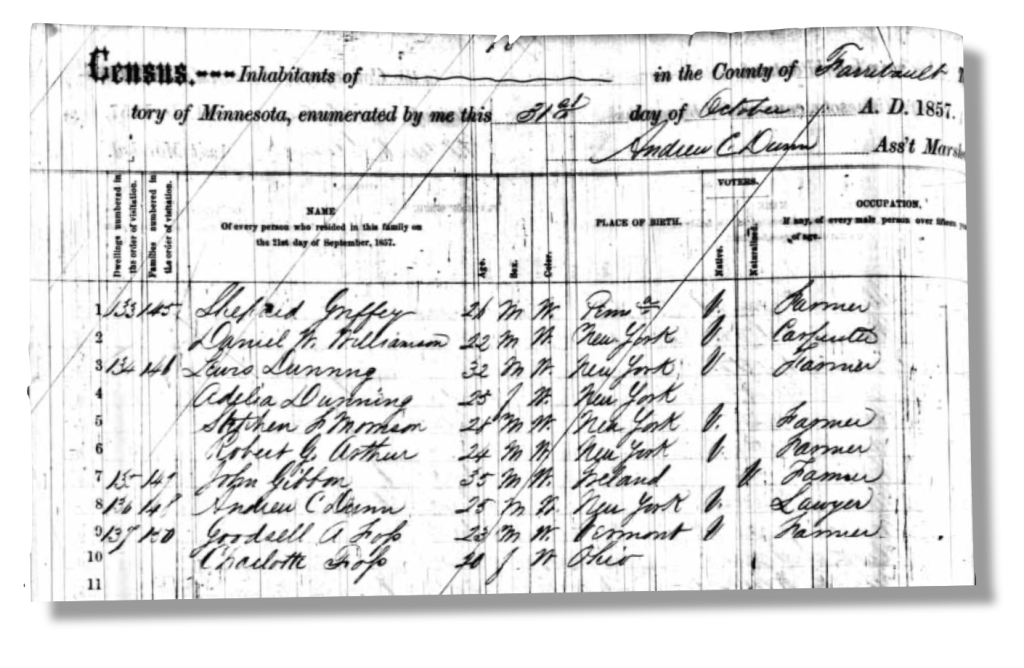 Census.--- Inhabitants of in the County of Farribault T
tory of Minnesota, enumerated by me this 31st day of October A. D. 1857.
Andrew C. Dunn Ass't Marsh
Dwellings numbered in the order of visitation.
Families numbered in the order of visitation.
NAME
Of every person who resided in this family on
the 21st day of September, 1857.
Age.
Sex.
Color.
PLACE OF BIRTH.
VOTERS.
Native.
Naturalized.
OCCUPATION,
If any, of every male person over fifteen
of age.
1 133 145 Griffey 26 M W. Penna V. Farmer
2 Daniel W. Williamson 22 M W. New York V. Carpenter
3 134 146 Lewis Dunning 32 M W. New York V Farmer
4 Adelia Dunning 25 f W. New York
5 Stephen F Morrison 28 M W. New York V. Farmer
6 Robert G. Arthur 24 M W. New York V. Farmer
7 135 147 John Gibbon 35 M W. Ireland N. Farmer
8 136 148 Andrew C Dunn 25 M W. New York V. Lawyer
9 137 150 Goodsell A Foss 23 M W. Vermont V Farmer
10 Charlotte Foss f W Ohio
11